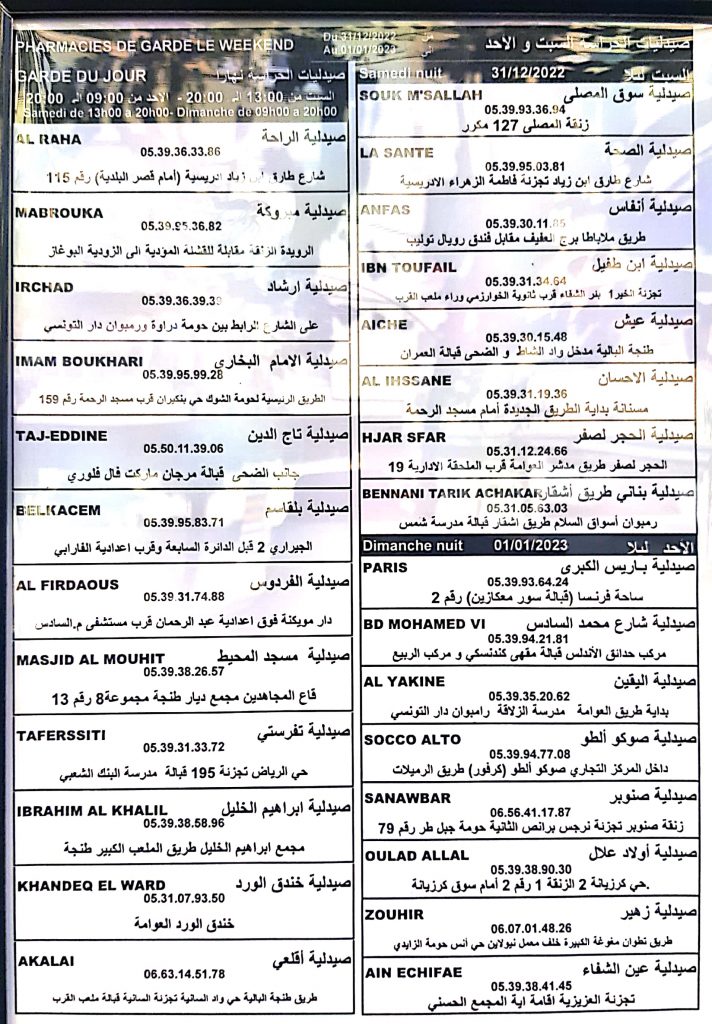 PHARMACIES DE GARDE LE WEEKEND Du 31/12/2022 من صيدليات الحراسة السبت و الأحد
Au 01/01/2023 الى
GARDE DU JOUR صيدليات الحراسة نهارا
السبت من 13:00 الـ 20:00 - الأحد من 09:00 الـ 20:00
Samedi de 13h00 a 20h00- Dimanche de 09h00 a 20h00
AL RAHA صيدلية الراحة
05.39.36.33.86
شارع طارق ابن زياد ادريسية (أمام قصر البلدية) رقم 115
MABROUKA صيدلية مبروكة
05.39.95.36.82
الرويدة الزلاقة مقابلة للقشلة المؤدية الى الزودية البوغاز
IRCHAD صيدلية ارشاد
05.39.36.39.39
على الشارع الرابط بين حومة دراوة ورمبوان دار التونسي
IMAM BOUKHARI صيدلية الامام البخاري
05.39.95.99.28
الطريق الرئيسية لحومة الشوك حي بنكيران قرب مسجد الرحمة رقم 159
TAJ-EDDINE صيدلية تاج الدين
05.50.11.39.06
جانب الضحى قبالة مرجان ماركت فال فلوري
BELKACEM صيدلية بلقاسم
05.39.95.83.71
الجيراري 2 قبل الدائرة السابعة وقرب اعدادية الفارابي
AL FIRDAOUS صيدلية الفردوس
05.39.31.74.88
دار مويكنة فوق اعدادية عبد الرحمان قرب مستشفى م.السادس
MASJID AL MOUHIT صيدلية مسجد المحيط
05.39.38.26.57
قاع المجاهدين مجمع ديار طنجة مجموعة8 رقم 13
TAFERSSITI صيدلية تفرستي
05.39.31.33.72
حي الرياض تجزئة 195 قبالة مدرسة البنك الشعبي
IBRAHIM AL KHALIL صيدلية ابراهيم الخليل
05.39.38.58.96
مجمع ابراهيم الخليل طريق الملعب الكبير طنجة
KHANDEQ EL WARD صيدلية خندق الورد
05.31.07.93.50
خندق الورد العوامة
AKALAI صيدلية أقلعي
06.63.14.51.78
طريق طنجة البالية حي واد السانية تجزئة السانية قبالة ملعب القرب
Samedi nuit 31/12/2022 السبت ليلا
SOUK M'SALLAH صيدلية سوق المصلى
05.39.93.36.94
زنقة المصلى 127 مكرر
LA SANTE صيدلية الصحة
05.39.95.03.81
شارع طارق ابن زياد تجزئة فاطمة الزهراء الادريسية
ANFAS صيدلية أنفاس
05.39.30.11.85
طريق ملاباطا برج العفيف مقابل فندق رويال توليب
IBN TOUFAIL صيدلية ابن طفيل
05.39.31.34.64
تجزئة الخير1 بئر الشفاء قرب ثانوية الخوارزمي وراء ملعب القرب
AICHE صيدلية عيش
05.39.30.15.48
طنجة البالية مدخل واد الشاط و الضحى قبالة العمران
AL IHSSANE صيدلية الاحسان
05.39.31.19.36
مسنانة بداية الطريق الجديدة أمام مسجد الرحمة
HJAR SFAR صيدلية الحجر لصفر
05.31.12.24.66
الحجر لصفر طريق مدشر العوامة قرب الملحقة الادارية 19
BENNANI TARIK ACHAKAR صيدلية بناني طريق أشقار
05.31.05.63.03
رمبوان أسواق السلام طريق اشقار قبالة مدرسة شمس
Dimanche nuit 01/01/2023 الأحد ليلا
PARIS صيدلية باريس الكبرى
05.39.93.64.24
ساحة فرنسا (قبالة سور معكازين) رقم 2
BD MOHAMED VI صيدلية شارع محمد السادس
05.39.94.21.81
مركب حدائق الأندلس قبالة مقهى كندنسكي و مركب الربيع
AL YAKINE صيدلية اليقين
05.39.35.20.62
بداية طريق العوامة مدرسة الزلاقة رامبوان دار التونسي
SOCCO ALTO صيدلية صوكو ألطو
05.39.94.77.08
داخل المركز التجاري صوكو ألطو (كرفور) طريق الرميلات
SANAWBAR صيدلية صنوبر
06.56.41.17.87
زنقة صنوبر تجزئة نرجس برانص الثانية حومة جبل طر رقم 79
OULAD ALLAL صيدلية أولاد علال
05.39.38.90.30
حي كرزيانة 2 الزنقة 1 رقم 2 أمام سوق كرزيانة.
ZOUHIR صيدلية زهير
06.07.01.48.26
طريق تطوان مغوغة الكبيرة خلف معمل نيولاين حي أنس حومة الزايدي
AIN ECHIFAE صيدلية عين الشفاء
05.39.38.41.45
تجزئة العزيزية اقامة اية المجمع الحسني